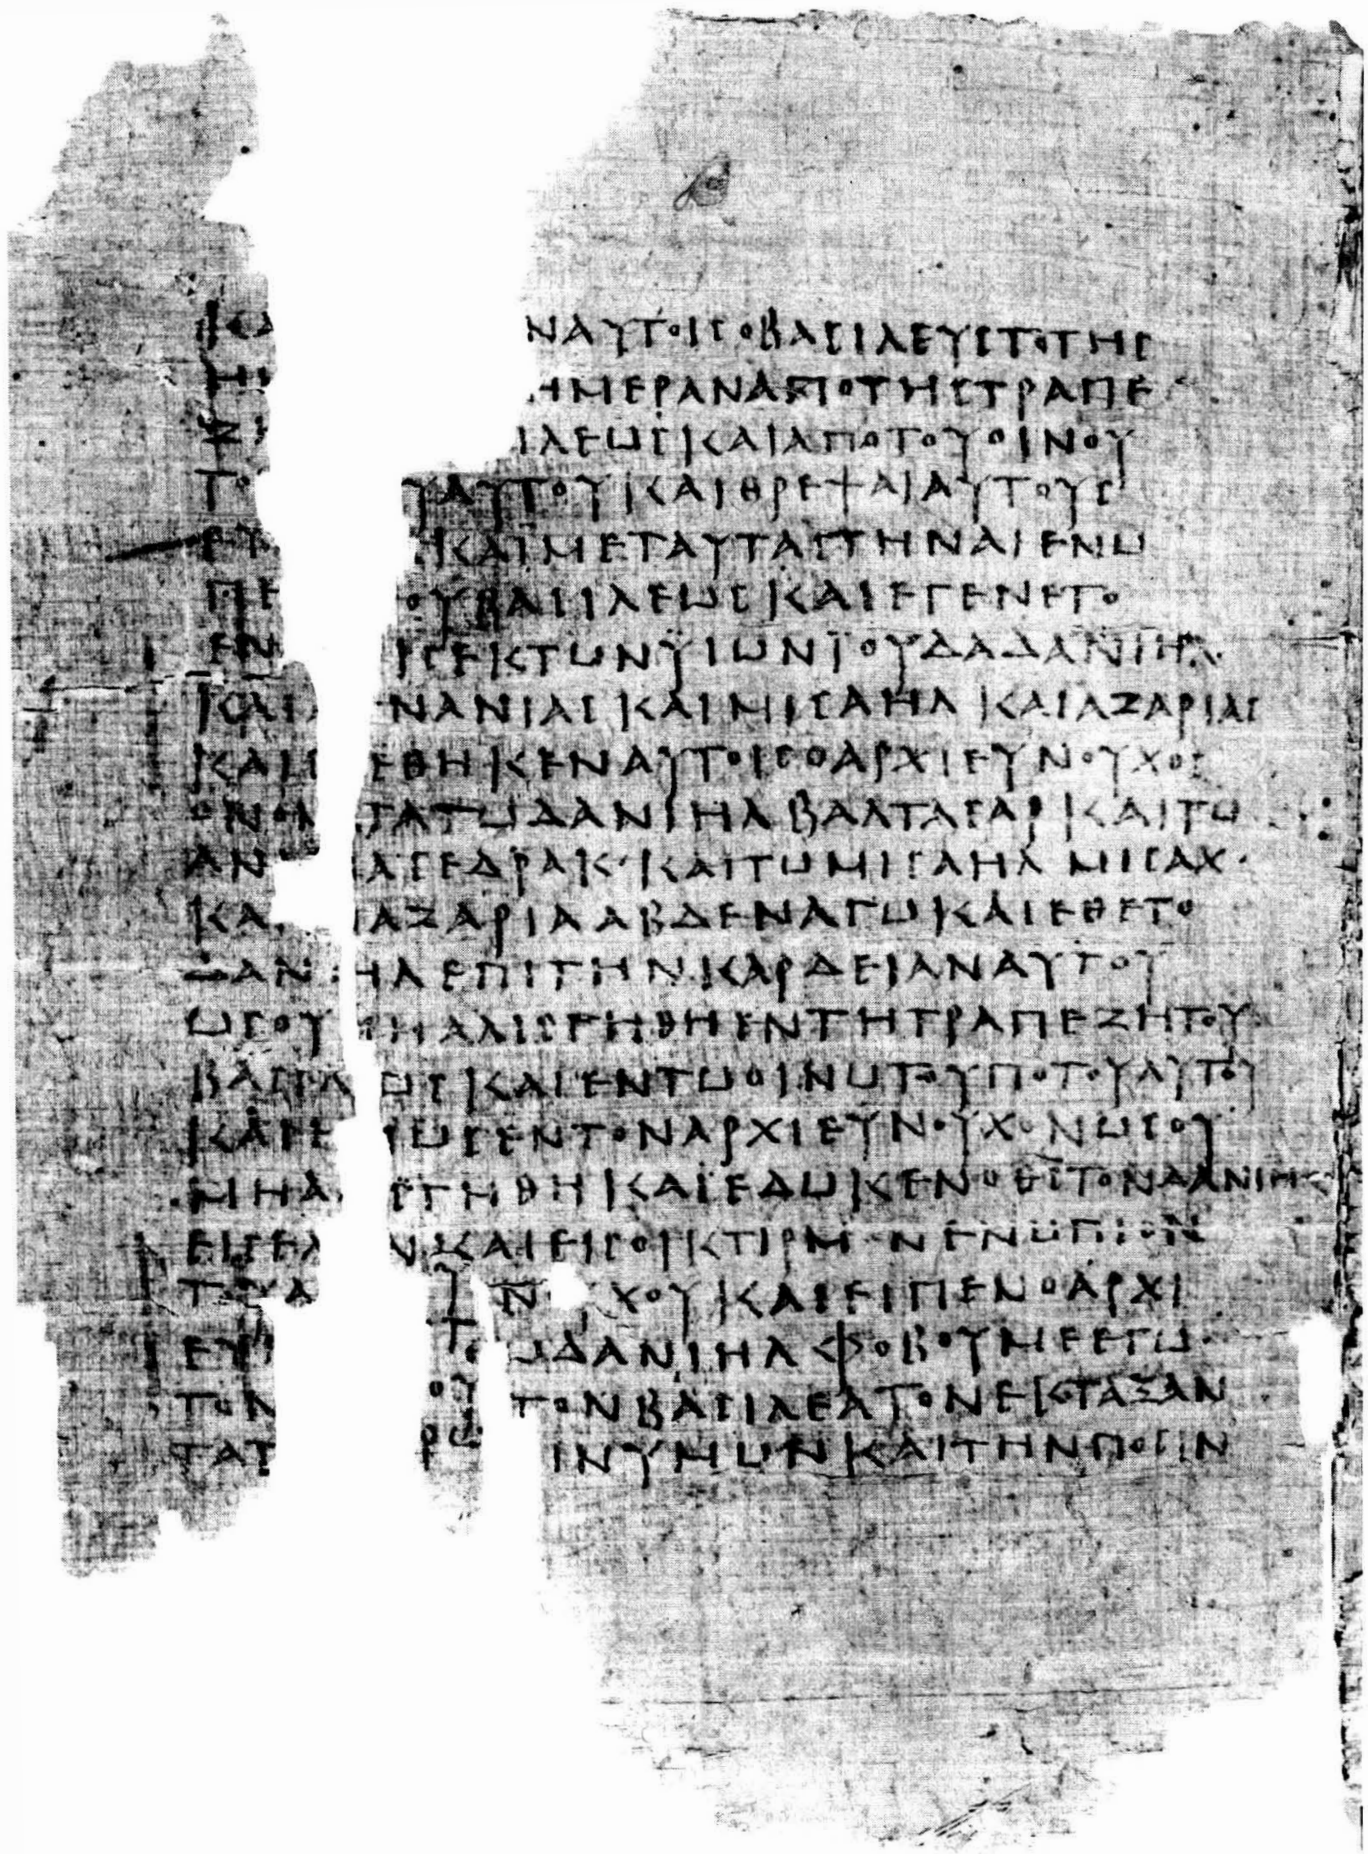 ΚΑ ΝΑΥΤΟΙΣΟΒΑΣΙΛΕΥΣΤΟΤΗΣ
ΗΜ ΗΜΕΡΑΝΑΠΟΤΗΣΤΡΑΠΕ
Ζ ΙΛΕΩΣΚΑΙΑΠΟΤΟΥΟΙΝΟΥ
ΤΟ ΥΑΥΤΟΥΚΑΙΘΡΕΨΑΙΑΥΤΟΥΣ
ΕΤ ΚΑΙΜΕΤΑΥΤΑΣΤΗΝΑΙΕΝΩ
ΠΙ ΟΥΒΑΣΙΛΕΩΣΚΑΙΕΓΕΝΕΤΟ
ΕΝ ΙΣΕΚΤΩΝΫΙΩΝΪΟΥΔΑΔΑΝΙΗΛ
ΚΑΙΑ ΝΑΝΙΑΣΚΑΙΜΙΣΑΗΛΚΑΙΑΖΑΡΙΑΣ
ΚΑΙΕ ΕΘΗΚΕΝΑΥΤΟΙΣΟΑΡΧΙΕΥΝΟΥΧΟΣ
ΟΝΟΜ ΤΑΤΩΔΑΝΙΗΛΒΑΛΤΑΣΑΡΚΑΙΤΩ
ΑΝ ΙΑΣΕΔΡΑΚ·ΚΑΙΤΩΜΙΣΑΗΛΜΙΣΑΧ·
ΚΑ ΑΖΑΡΙΑΑΒΔΕΝΑΓΩΚΑΙΕΘΕΤΟ
ΔΑΝ ΗΛΕΠΙΤΗΝΚΑΡΔΕΙΑΝΑΥΤΟΥ
ΩΣΟΥ ΜΗΑΛΙΣΓΗΘΗΕΝΤΗΤΡΑΠΕΖΗΤΟΥ
ΒΑΣΙΛ ΩΣΚΑΙΕΝΤΩΟΙΝΩΤΟΥΠΟΤΟΥΑΥΤΟΥ
ΚΑΙΕ ΙΩΣΕΝΤΟΝΑΡΧΙΕΥΝΟΥΧΟΝΩΣΟΥ
ΜΗΑ ΣΓΗΘΗΚΑΙΕΔΩΚΕΝΟΘΣΤΟΝΔΑΝΙΗΛ
ΕΙΣΕΛ ΝΚΑΙΕΙΣΟΙΚΤΙΡΜ ΝΕΝΩΠΙΟΝ
ΤΟΥΑ Ι Ν ΥΧΟΥΚΑΙΕΙΠΕΝΟΑΡΧΙ
ΕΥ ΤΩΔΑΝΙΗΛΦΟΒΟΥΜΕΕΓΩ·
ΤΟΝ ΟΥ ΤΟΝΒΑΣΙΛΕΑΤΟΝΕΚΤΑΞΑΝ
ΤΑΤ ΡΩ ΙΝΥΜΩΝΚΑΙΤΗΝΠΟΣΙΝ